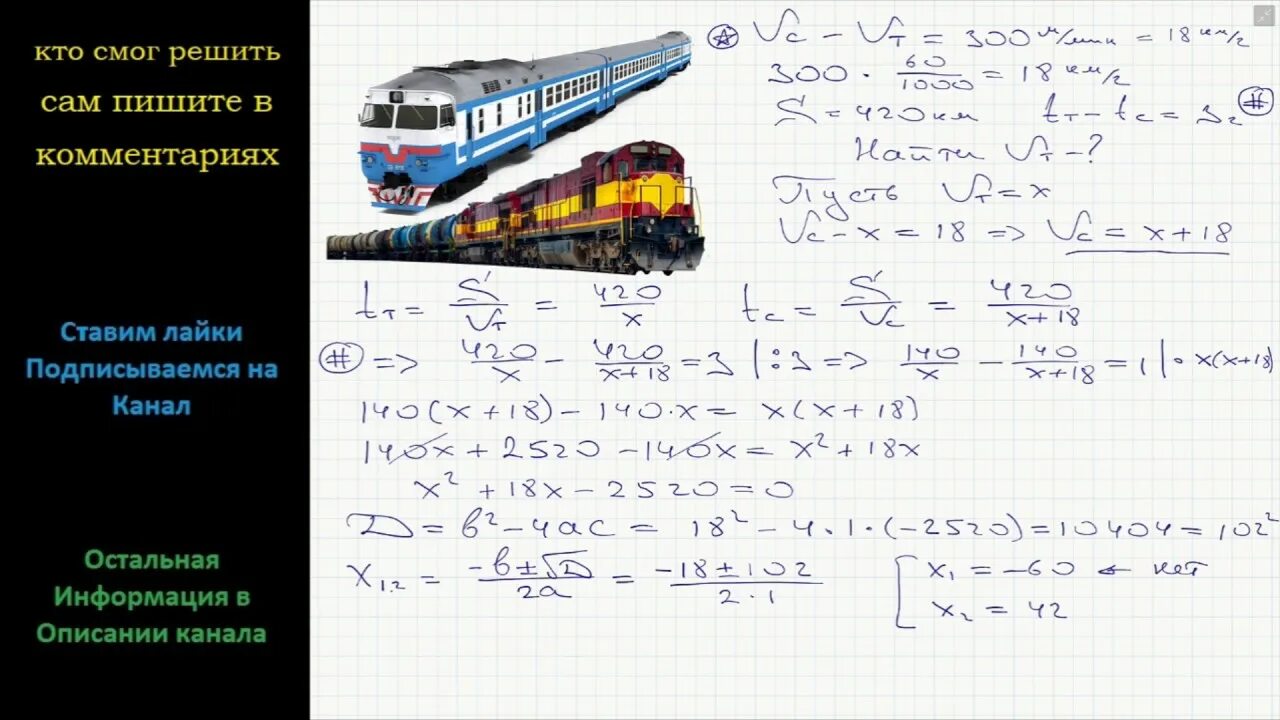 кто смог решить
сам пишите в
комментариях
Ставим лайки
Подписываемся на
Канал
Остальная
Информация в
Описании канала
Vс − Vт = 300 м/мин = 18 км/г
300 · 60/1000 = 18 км/г
S = 420 км tт − tс = 3г #
Найти Vт − ?
Пусть Vт = x
Vс − x = 18 => Vс = x + 18
tт = S/Vт = 420/x tс = S/Vс = 420/(x+18)
# => 420/x − 420/(x+18) = 3 | : 3 => 140/x − 140/(x+18) = 1 | · x(x+18)
140(x + 18) − 140·x = x(x + 18)
140x + 2520 − 140x = x² + 18x
x² + 18x − 2520 = 0
D = в² − 4ас = 18² − 4·1·(−2520) = 10404 = 102²
x₁,₂ = (−в ± √D)/2а = (−18 ± 102)/(2·1) [ x₁ = −60 ← нет
x₂ = 42